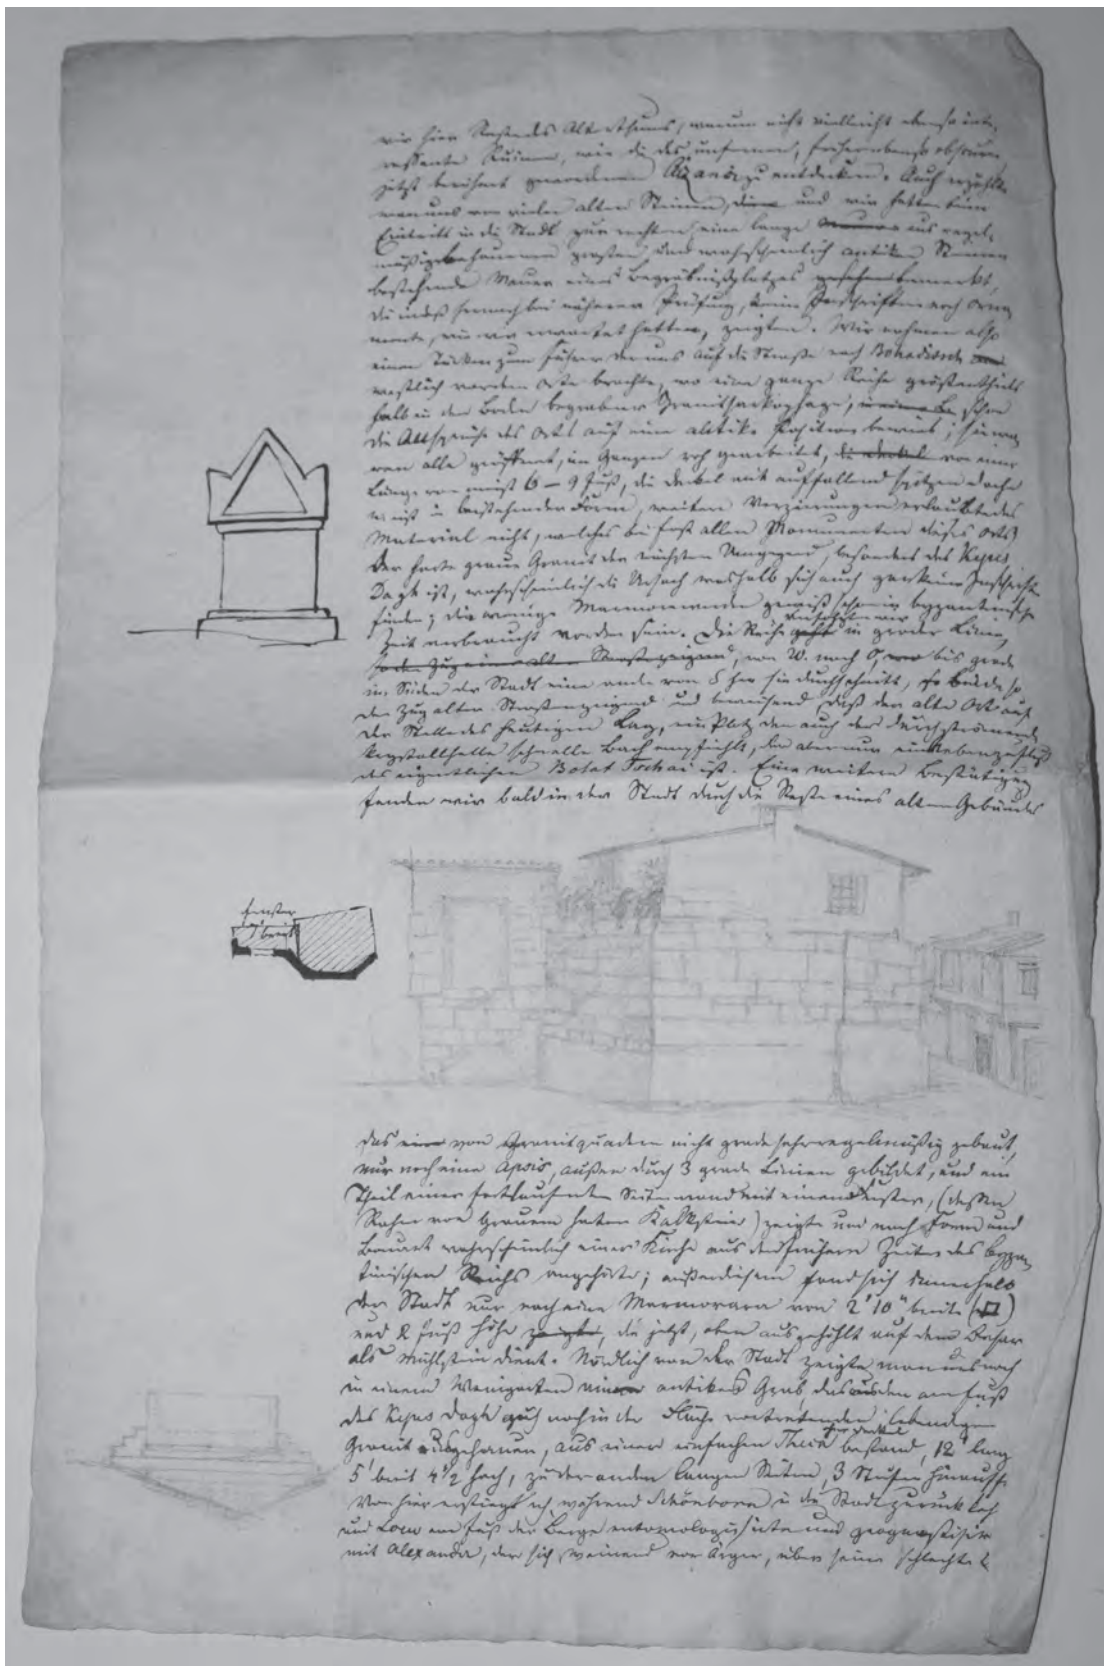 wir hier Reste des Alterthums, warum nicht vielleicht ebenso inte-
ressante Ruinen, wie die des unfernen, früher ebenso obscuren
jetzt berühmt gewordenen Aizanis zu entdecken. Auch erzählte
man uns von vielen alten Steinen, und wir hatten beim
Eintritt in die Stadt zur rechten eine lange aus regel-
mäßig behauenen großen, und wahrscheinlich antiken Steinen
bestehende Mauer eines Begräbnißplatzes bemerkt,
die indeß hernach bei näherer Prüfung, keine Inschriften noch Orna
mente, wie wir erwartet hatten, zeigten. Wir nahmen also
einen Türken zum Führer der uns auf die Straße nach Bohadisch
westlich vor den Ort brachte, wo eine ganze Reihe größtentheils
halb in den Boden begrabener Granitsarkophage, schon
die Ansprüche des Orts auf eine antike Position bewies;
waren alle geöffnet, im Ganzen roh gearbeitet, von einer
Länge von meist 6 – 9 Fuß, die Deckel mit auffallend spitzen Dache
in beistehender Form, weitere Verzierungen erlaubte das
Material nicht, welches bei fast allen Monumenten dieses Orts
der harte graue Granit der nächsten Umgegend, besonders des Kepes
Dagh ist, wahrscheinlich die Ursach weshalb sich auch gar keine Inschriften
finden; die wenige Marmor werden gewiß schon in byzantinische
Zeit verbraucht worden sein. Die Reihe in grader Linie,
von W. nach O, bis grade
im Süden der Stadt eine andre von S her sie durchschnitt, so beide
den Zug alter Straßen zeigend und beweisend daß der alte Ort auf
der Stelle des heutigen lag, ein Platz den auch der durchströmende
krystallhelle schnelle Bach empfiehlt, der aber nur ein Nebenzufluß
des eigentlichen Bolat Tschai ist. Eine weitere Bestätigung
fanden wir bald in der Stadt durch die Reste eines alten Gebäudes
Fenster
breit
das von Granitquadern nicht grade sehr regelmäßig gebaut,
nur noch eine Apsis, außen durch 3 grade Linien gebildet, und ein
Theil einer fortlaufenden Seitenwand mit einem Fenster, (dessen
Rahmen von grauem harten Kalkstein) zeigte und nach Form und
Bauart wahrscheinlich einer Kirche aus den frühern Zeiten des byzan
tinischen Reichs angehörte; außerdem fand sich innerhalb
der Stadt nur noch eine Marmorara von 2' 10" breite
und 2 Fuß Höhe, die jetzt, oben ausgehöhlt auf dem Basar
als Mühlstein dient. Nördlich von der Stadt zeigte man uns noch
in einem Weingarten ein antikes Grab, das aus dem am Fuß
des Kepes Dagh auch noch in der Fläche vortretenden lebendigen
Granit ausgehauen, aus einem einfachen bestand, 12' lang
5' breit 4½ hoch, zu der andern langen Seiten, 3 Stufen hinauf
Von hier erstieg ich während Schönborn in die Stadt zurück
und Loew am Fuß der Berge entomologisirte und geognostisirte
mit Alexander, der sich, weinend vor Ärger, über seine schlechte